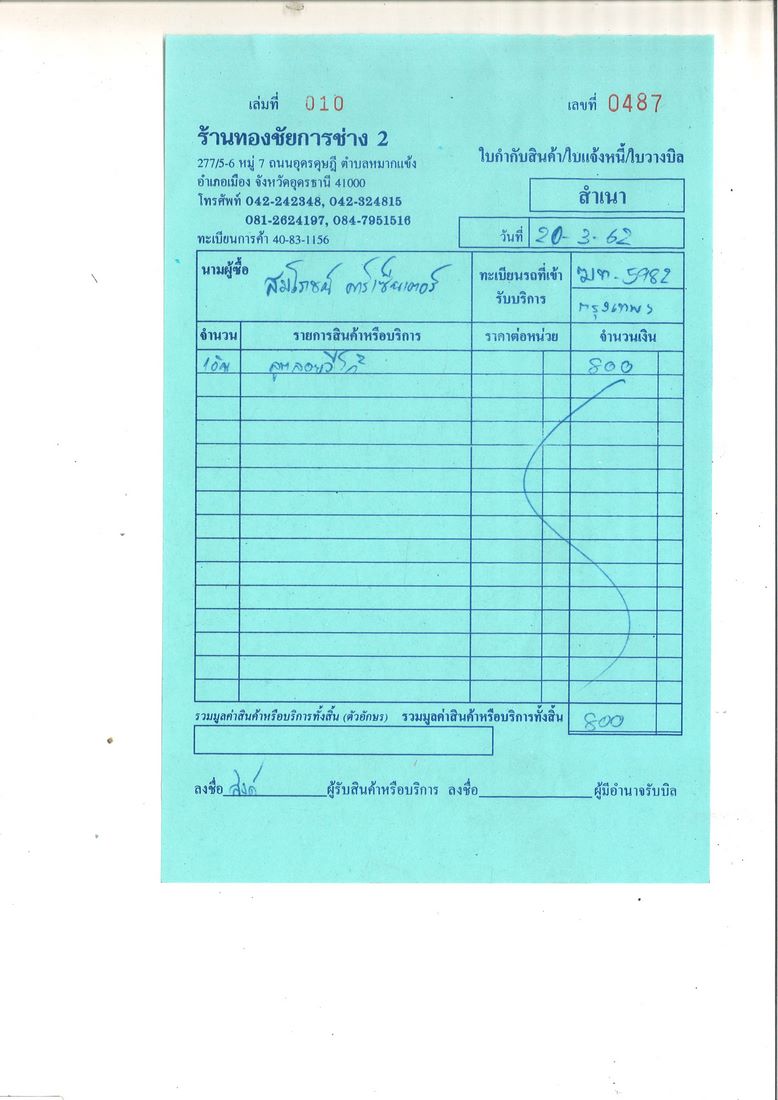 เล่มที่ 010 เลขที่ 0487
ร้านทองชัยการช่าง 2
277/5-6 หมู่ 7 ถนนอุดรดุษฎี ตำบลหมากแข้ง
ใบกำกับสินค้า/ใบแจ้งหนี้/ใบวางบิล
อำเภอเมือง จังหวัดอุดรธานี 41000
โทรศัพท์ 042-242348, 042-324815
สำเนา
081-2624197, 084-7951516
ทะเบียนการค้า 40-83-1156
วันที่ 20-3-62
นามผู้ซื้อ สมโภชน์ คาร์เซ็นเตอร์
ทะเบียนรถที่เข้า
รับบริการ
5982
กรุงเทพฯ
จำนวน รายการสินค้าหรือบริการ ราคาต่อหน่วย จำนวนเงิน
800
รวมมูลค่าสินค้าหรือบริการทั้งสิ้น (ตัวอักษร) รวมมูลค่าสินค้าหรือบริการทั้งสิ้น 800
ลงชื่อ ผู้รับสินค้าหรือบริการ ลงชื่อ ผู้มีอำนาจรับบิล